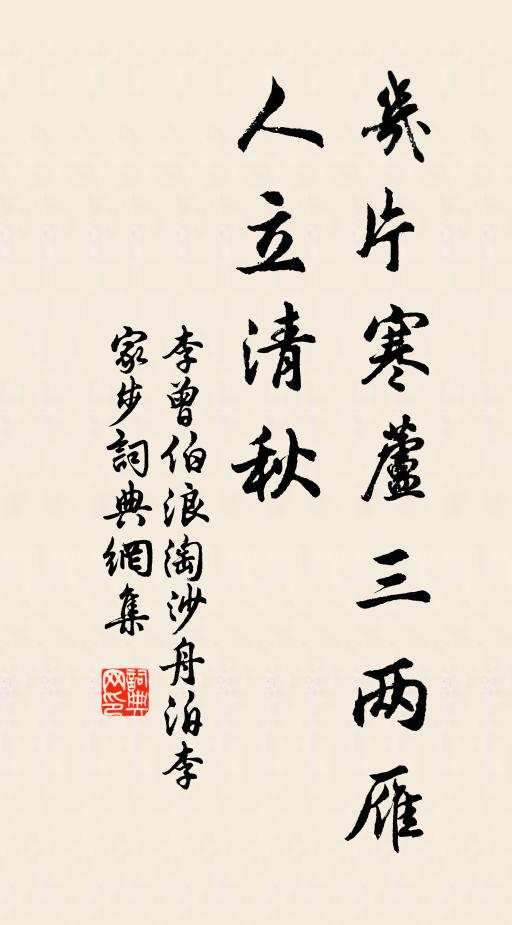 幾片寒蘆三两雁
人立清秋
李曾伯浪淘沙舟泊李
家步詞典網集
詞典网印